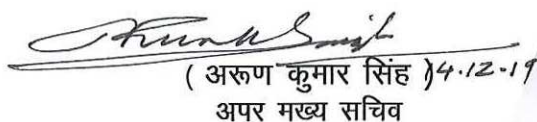 ( अरूण कुमार सिंह ) 4.12.19
अपर मख्य सचिव